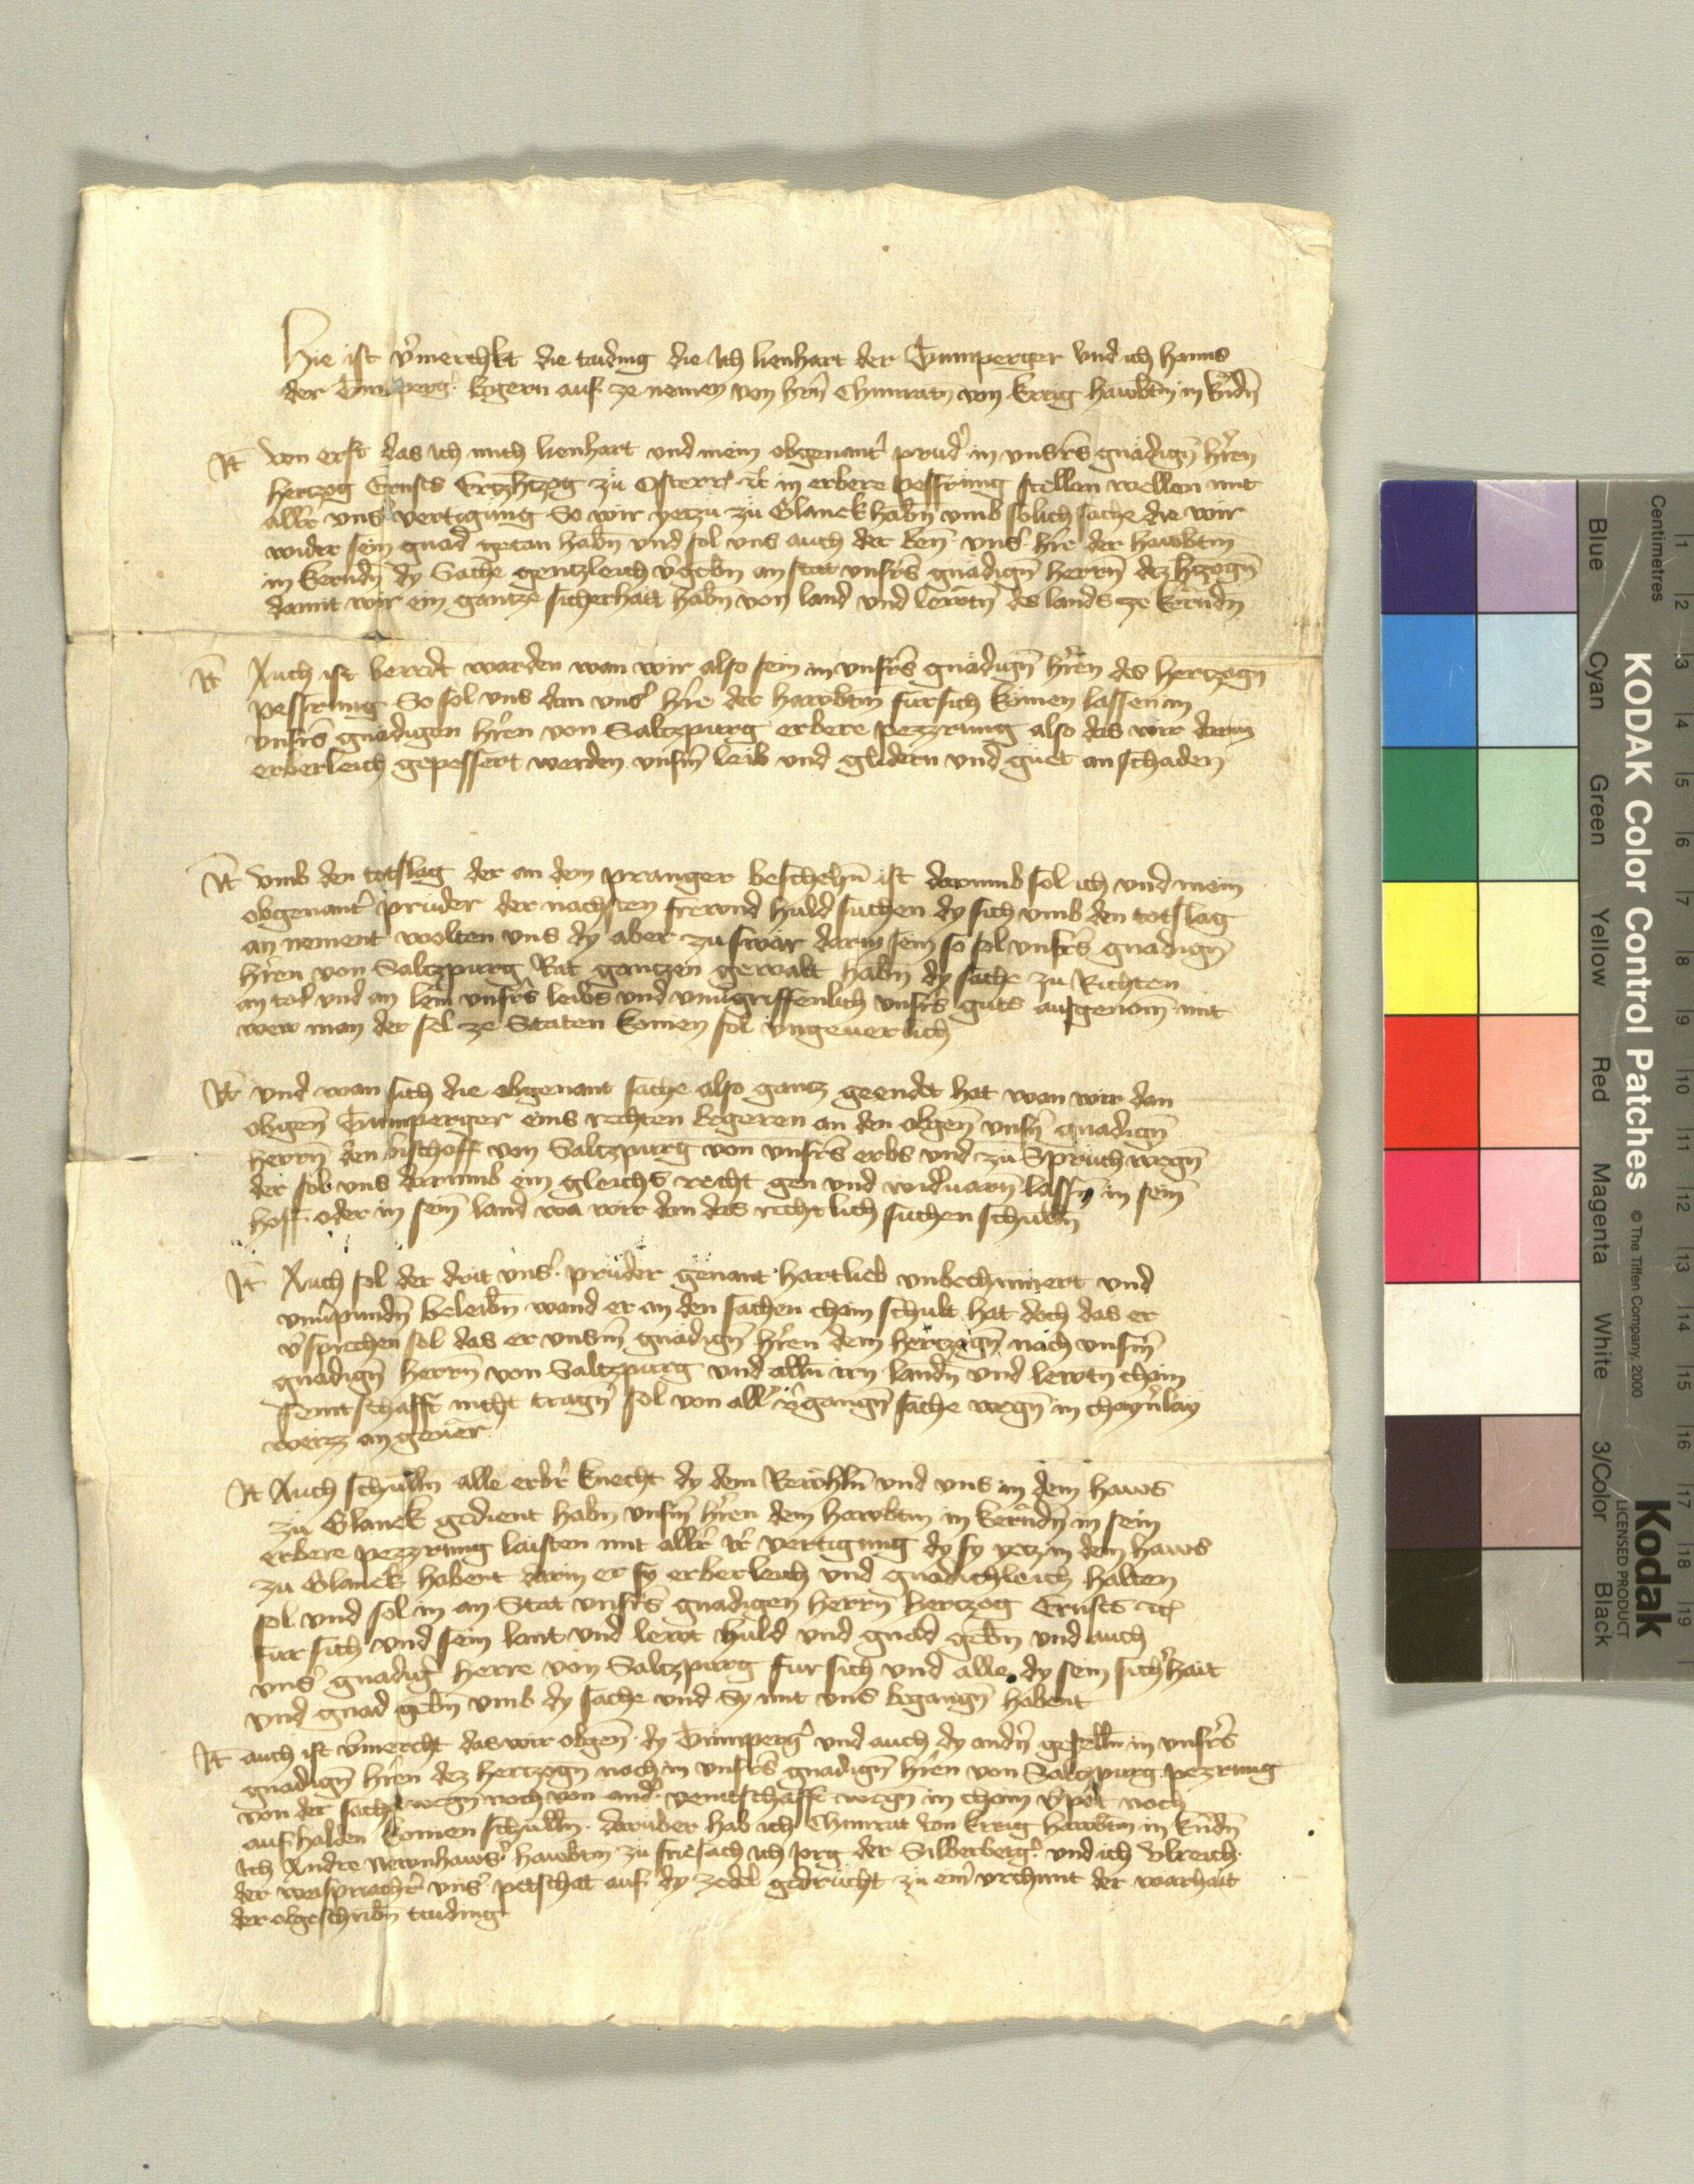 Hie ist v̓merchkt die taiding die Ich lienhart der Trumperger vnd ich hanns
der begern auf ze nemen von hrn̄ Chunratn von kreig hawbtm̄ in
It̄ von erst das ich mich lienhart vnd mein obgenant̓ prud̓ in vnsrs̄ gnädign̄ hr̄en
hertzog Ernsts Ertzhtzog zu Osterr̄ etc̄ in erbere pessrung stellen wellen mit
allr̄ vns̓ vertigung So wir yetzu zu Glanek habn̄ vmb solich sache die wir
wider sein gnad getan habn̄ vnd sol vns auch der ben̄ vns̓ hr̄e der hawbtm̄
in kerndn̄ dy Sache gentzleich v̓gebn̄ an stat vnsrs̄ gnädign̄ herrn̄ dez htzogn̄
damit wir ein gantze sicherhait habn̄ von land vnd lewtn̄ des lands ze kerndn̄
It̄ Auch ist beredt warden wan wir also sein in vnsrs̄ gnädign̄ hr̄en des hertzogn
pessrung So sol vns dan vns̓ hr̄e der hawbtm̄ fur sich komen lassen in
vnsrs̄ gnädigen hr̄en von Saltzpurg erbere pezzrung also das wir darin
erberleich gepessert werden vnsm̄ leib vnd glidern vnd guet an schaden
It̄ vmb den totslag der an dem pranger beschehn̄ ist darumb sol ich vnd mein
obgenant̓ pruder der nachsten frewnd huld suchen dy sich vmb den totslag
an nement wolten vns dy aber zu swär darin sein so sol vnsrs̄ gnadign̄
hr̄en von Saltzpurg Rat gantzen gewalt habn̄ dy sache zu Richten
an tod vnd an lem vnsrs̄ leibs vnd vnuigriffenlich vnsrs̄ guts ausgenom̄ mit
wew man der sel ze Staten komen sol vngeuerlich
It̄ vnd wan sich die obgenant sache also gantz geendet hat wan wir dan
obgen̄ Trumperger eins rechten begeren an den obgen̄ vnsn̄ gnadign̄
herrn̄ den bischoff von Saltzpurg von vnsrs̄ erbs vnd zu Spruch wegn̄
der sol vns darumb ein gleichs recht gen vnd widuarn̄ lassn̄ in seim̄
hoff oder in seim̄ land wa wir dan das rechtlich suchen schulln̄
It̄ Auch sol der drit vns̓ pruder genant hartlieb vnbechumert vnd
beleibn̄ wand er an den sachen chain schult hat doch das er
v̓sprechen sol das er vnsm̄ gnädign̄ hr̄en dem hertzogn̄ nach vnsm̄
gnädign̄ herrn̄ von Saltzpurg vnd alln̄ irn landn̄ vnd lewtn chain
feintschafft nicht tragn̄ sol von all̓ v̓gangn̄ sache wegn̄ in chayn̓lay
weizz an geuer
It̄ Auch schulln̄ alle erbr̄ knecht dy dem vnd vns in dem haws
zu Glanek gedient habn̄ vnsm̄ hr̄en dem hawbtm̄ in kerndn̄ in sein
erbere pezzrung laisten mit allr̄ ir̄ vertigung dy sy yetz in dem haws
zu Glanek habent darin er sy erberleich vnd gnadichleich halten
sol vnd sol in an Stat vnsrs̄ gnadigen herrn̄ hertzog Ernsts etc̄
fur sich vnd sein lant vnd lewt huld vnd gnad gebn̄ vnd auch
vns̓ gnadig̓ herre von Saltzpurg fur sich vnd alle dy sein sich̓hait
vnd gnad gebn̄ vmb dy sache vnd Sy mit vns begangn̄ habent
It̄ auch ist v̓mercht das wir obgen̄ dy Trumperg̓ vnd auch dy andn̄ geselln̄ in vnsrs̄
gnadign̄ hr̄en dez hertzogn̄ noch in vnsrs̄ gnadign̄ hr̄en von Saltzpurg pezrung
von der sach wegn̄ noch von and̓ veintschafft wegn̄ in chain v̓pot noch
aufhalden komen schulln̄. darüber hab ich Chunrat von kreig hawbtm̄ in kn̄dn̄
Ich Andre hawbtm̄ zu friesach Ich Jorg der Silberberg̓ vnd ich vlreich
der weispriach̓ vns̓ petschat auf dy zedel gedrucht zu ein̓ vrchunt der warhait
der obgeschribn̄ taiding
KODAK Color Control Patches
© The Tiffen Company, 2000
Kodak
LICENSED PRODUCT
Centimetres
1 2 3 4 5 6 7 8 9 10 11 12 13 14 15 16 17 18 19
Blue
Cyan
Green
Yellow
Red
Magenta
White
3/Color
Black